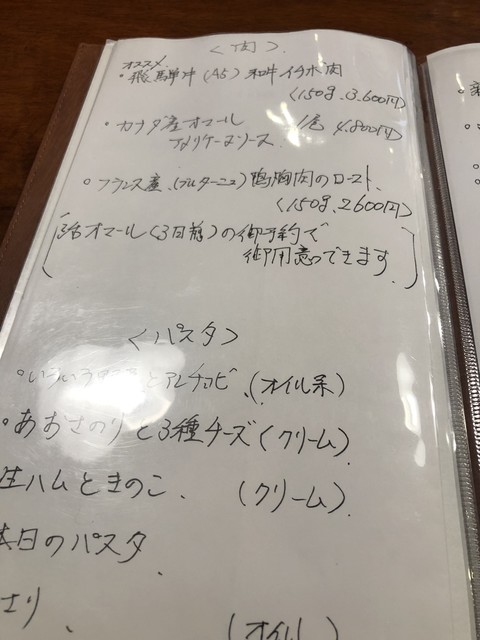 〈肉〉
オススメ
・飛騨牛(A5)和牛イチボ肉
〈150g、3,600円〉
・カナダ産オマール 1尾 4,800円〉
アメリケーヌソース
・フランス産、(ブルターニュ)鴨胸肉のロースト、
〈150g、2600円〉
(活オマール(3日前)の御予約で
御用意できます)
〈パスタ〉
・いろいろ とアンチョビ、(オイル系)
・あおさのりと3種チーズ(クリーム)
生ハムときのこ、(クリーム)
本日のパスタ
さり、(オイル)